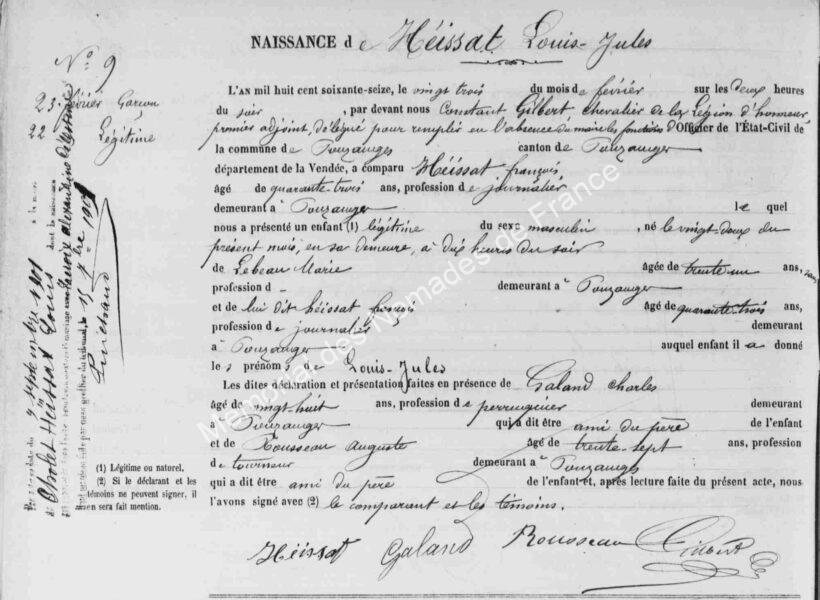 NAISSANCE de Héissat Louis-Jules
N° 9
23 février Garçon
22 Légitime
L'AN mil huit cent soixante-seize, le vingt trois du mois de février sur les deux heures
du soir, par devant nous Constant Gilbert chevalier de la Légion d'honneur,
premier adjoint, délégué pour remplir en l'absence du maire les fonctions d'Officier de l'État-Civil de
la commune de Pouzauges canton de Pouzauges
département de la Vendée, a comparu Héissat françois
âgé de quarante-trois ans, profession de journalier
demeurant à Pouzauges le quel
nous a présenté un enfant (1) légitime du sexe masculin, né le vingt-deux du
présent mois, en sa demeure, à dix heures du soir
de Lebeau Marie âgée de trente un ans, sans
profession d - demeurant à Pouzauges
et de lui dit héissat françois âgé de quarante-trois ans,
profession de journalier demeurant
à Pouzauges auquel enfant il a donné
le s prénom s de Louis-Jules
Les dites déclaration et présentation faites en présence de Galand Charles
âgé de vingt-huit ans, profession de perruquier demeurant
à Pouzauges qui a dit être ami du père de l'enfant
et de Rousseau auguste âgé de trente-sept ans, profession
de tourneur demeurant à Pouzauges
qui a dit être ami du père de l'enfant et, après lecture faite du présent acte, nous
l'avons signé avec (2) le comparant et les témoins.
Héissat Galand Rousseau Gilbert
(1) Légitime ou naturel.
(2) Si le déclarant et les
témoins ne peuvent signer, il
en sera fait mention.
septembre 1901 à la mairie
Cholet Héissat Louis dont la naissance
alexandrine
15 7bre 1901
Memorial des Nomades de France